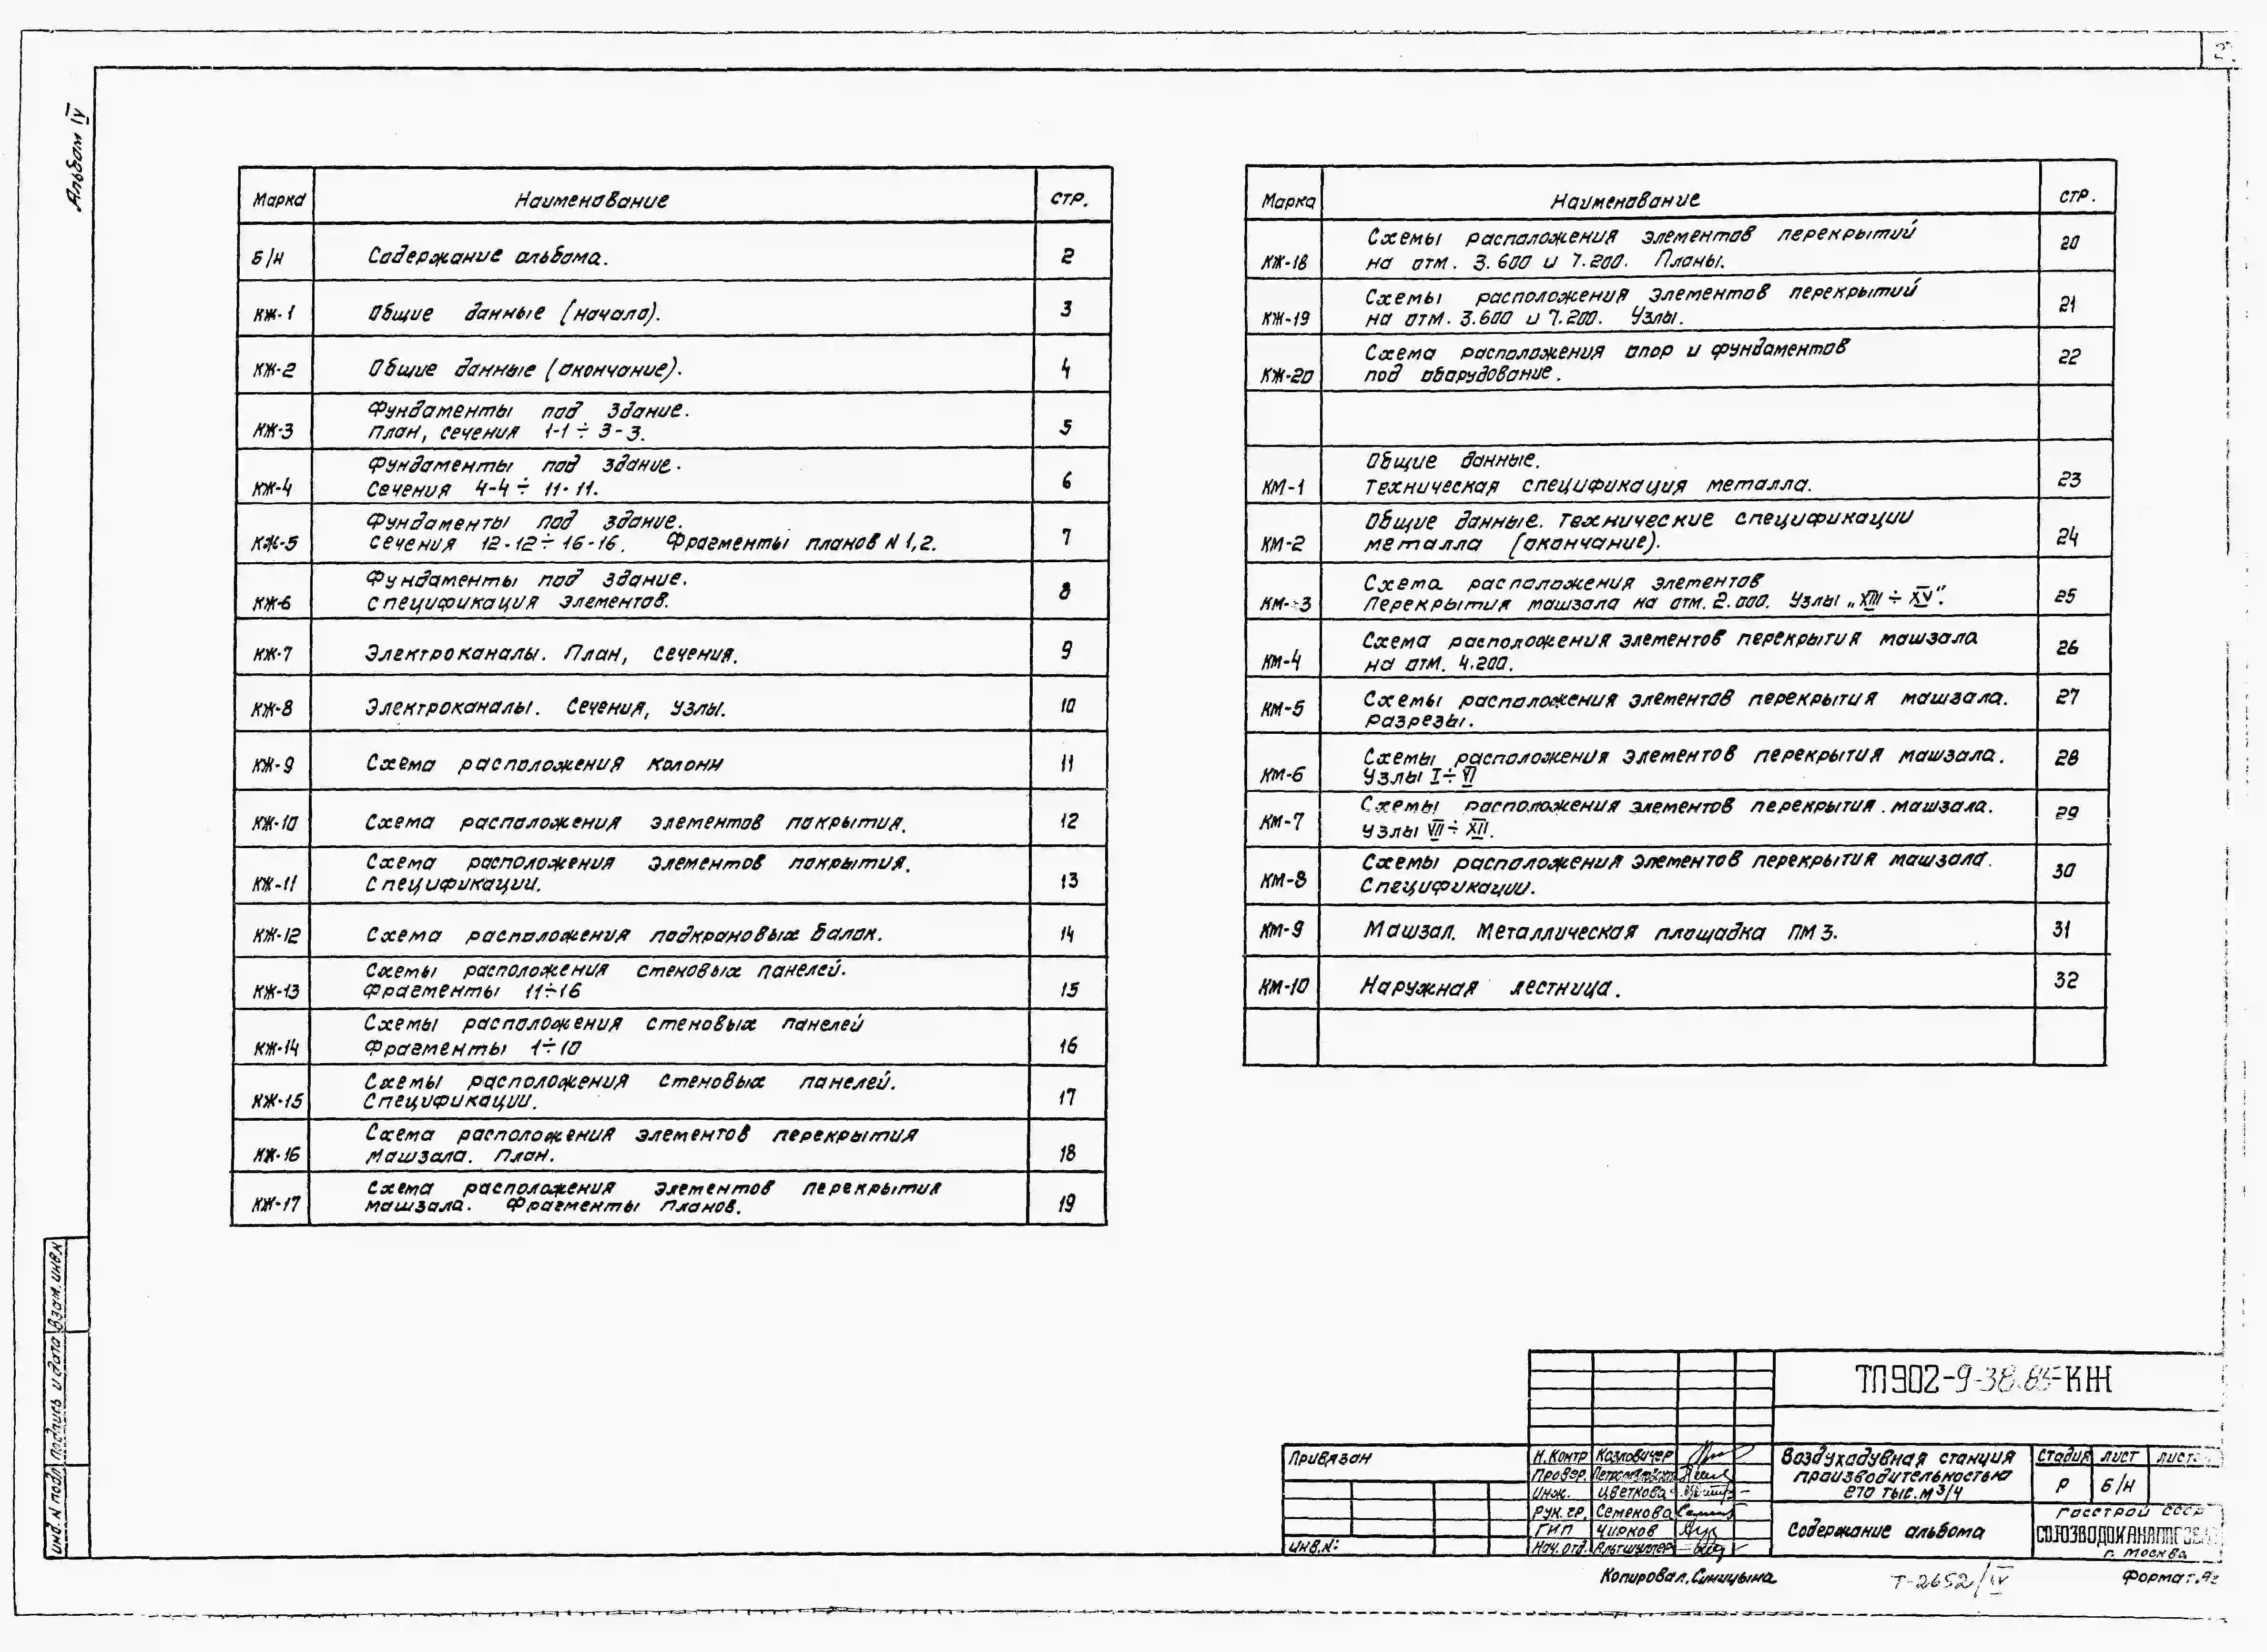 2
Альбом IV
Марка Наименование стр.
Б/н Содержание альбома. 2
КЖ-1 Общие данные (начало). 3
КЖ-2 Общие данные (окончание). 4
Фундаменты под здание.
КЖ-3 План, сечения 1-1 ÷ 3-3. 5
Фундаменты под здание.
КЖ-4 Сечения 4-4 ÷ 11-11. 6
Фундаменты под здание.
КЖ-5 Сечения 12-12 ÷ 16-16. Фрагменты планов N 1,2. 7
Фундаменты под здание.
КЖ-6 Спецификация элементов. 8
КЖ-7 Электроканалы. План, сечения. 9
КЖ-8 Электроканалы. Сечения, узлы. 10
КЖ-9 Схема расположения колонн 11
КЖ-10 Схема расположения элементов покрытия. 12
Схема расположения элементов покрытия.
КЖ-11 Спецификации. 13
КЖ-12 Схема расположения подкрановых балок. 14
Схемы расположения стеновых панелей.
КЖ-13 Фрагменты 11÷16 15
Схемы расположения стеновых панелей
КЖ-14 Фрагменты 1÷10 16
Схемы расположения стеновых панелей.
КЖ-15 Спецификации. 17
Схема расположения элементов перекрытия
КЖ-16 Машзала. План. 18
Схема расположения элементов перекрытия
КЖ-17 машзала. Фрагменты планов. 19
Марка Наименование стр.
Схемы расположения элементов перекрытий
КЖ-18 на отм. 3.600 и 7.200. Планы. 20
Схемы расположения элементов перекрытий
КЖ-19 на отм. 3.600 и 7.200. Узлы. 21
Схема расположения опор и фундаментов
КЖ-20 под оборудование. 22
Общие данные.
КМ-1 Техническая спецификация металла. 23
Общие данные. Технические спецификации
КМ-2 металла (окончание). 24
Схема расположения элементов
КМ-3 Перекрытия машзала на отм. 2.000. Узлы „XIII ÷ XV". 25
Схема расположения элементов перекрытия машзала
КМ-4 на отм. 4.200. 26
Схемы расположения элементов перекрытия машзала.
КМ-5 разрезы. 27
Схемы расположения элементов перекрытия машзала.
КМ-6 Узлы I ÷ VI 28
Схемы расположения элементов перекрытия машзала.
КМ-7 Узлы VII ÷ XII. 29
Схемы расположения элементов перекрытия машзала.
КМ-8 Спецификации. 30
КМ-9 Машзал. Металлическая площадка ПМ 3. 31
КМ-10 Наружная лестница. 32
Инв.N подл Подпись и дата Взам.инв.N
ТП902-9-38.85-КЖ
Привязан
Инв.N:
Н.контр Козловичер
Провер.
Инж. Цветкова
Рук.гр. Семенова
ГИП Чирков
Нач.отд. Альтшуллер
Воздуходувная станция
производительностью
270 тыс.м3/ч
Содержание альбома
Стадия лист листов
Р Б/н
Госстрой СССР
СОЮЗВОДОКАНАЛПРОЕКТ
г. Москва
Копировал.Синицына
Т-2652/IV
Формат.А2